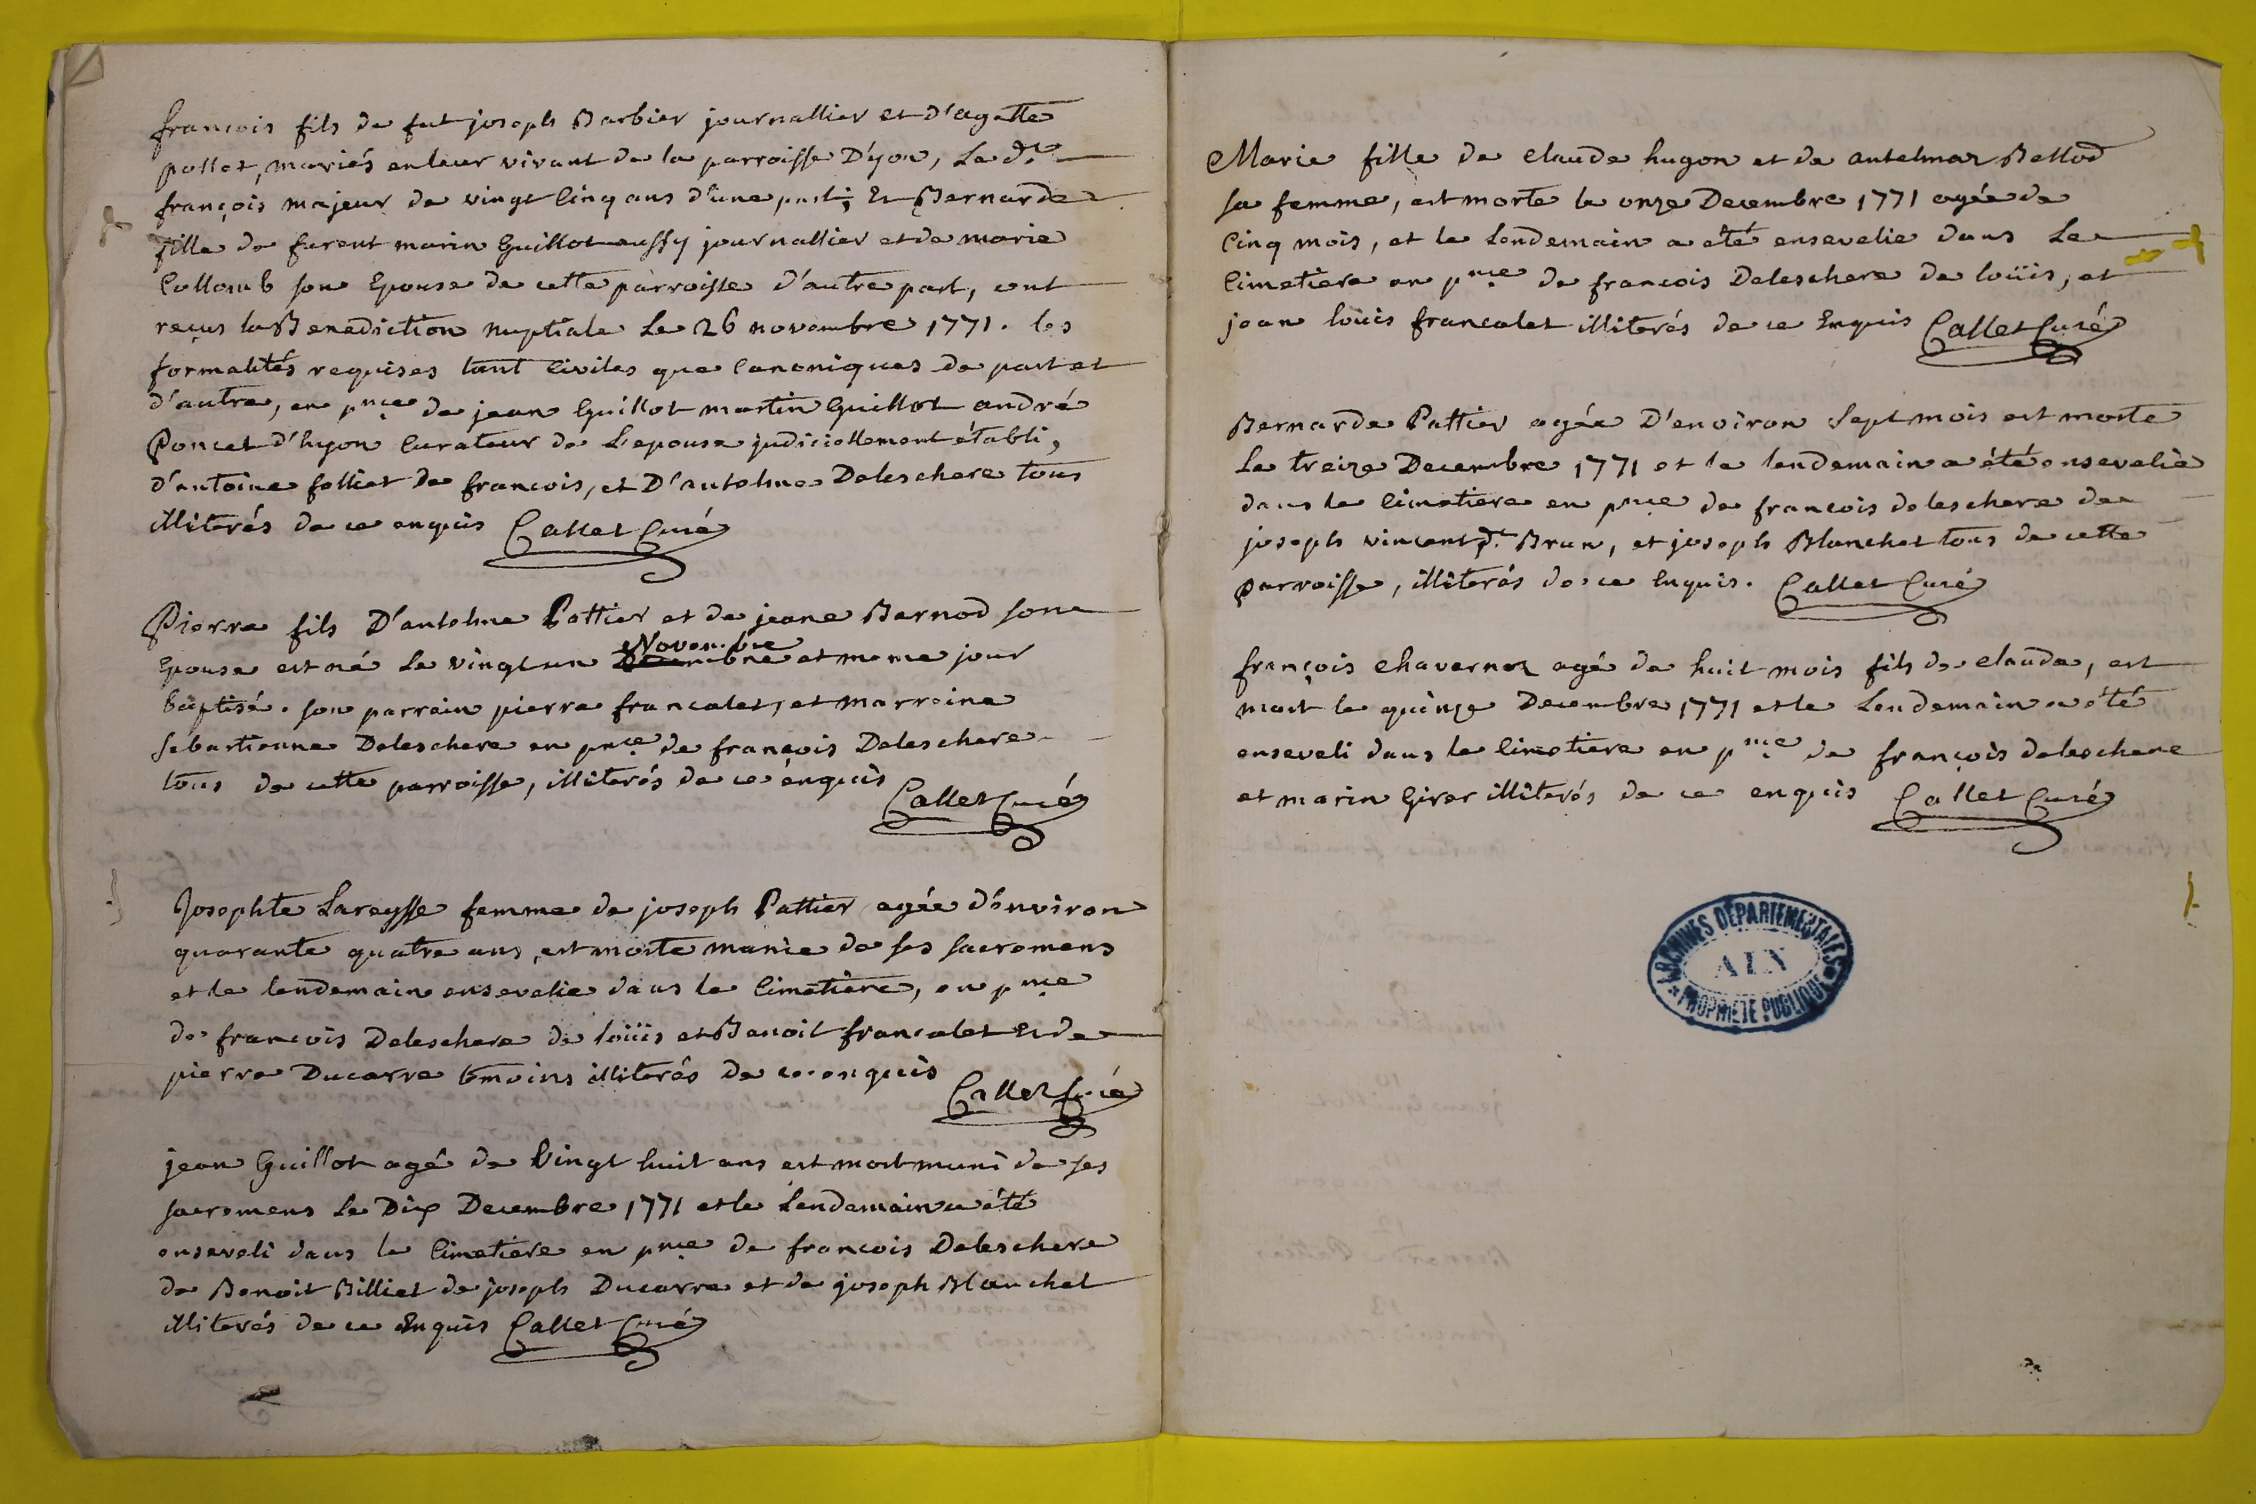 francois fils de fut joseph Barbier journallier et d'agatte
pollet, mariés en leur vivant de la parroisse D'yon, Le dt
françois majeur de vingt Cinq ans d'une part; Et Bernarde
fille de furent marin Guillot aussy journallier et de marie
Collomb son Epouse de cette parroisse d'autre part, ont
reçus la Benediction nuptiale Le 26 novembre 1771. les
formalités requises tant Civiles que Canoniques de part et
d'autre, en pnce de jean Guillot martin Guillot andré
Poncet d'hyon Curateur de L'epouse judiciellement établi,
d'antoine folliet de francois, et D'antelme Deleschere tous
illiterés de ce enquis Callet Curé
Pierre fils D'antelme Pattier et de jeane Bernod son
Epouse est né Le vingt un Novembre et meme jour
baptisé. son parrein pierre francalet, et marreine
Sebastienne Deleschere en pnce de françois Deleschere
tous de cette parroisse, illiterés de ce enquis
Callet Curé
Josephte Lareysse femme de joseph Pattier agée d'environ
quarante quatre ans, est morte munie de ses sacremens
et le lendemain ensevelie dans le Cimetière, en pnce
de francois Deleschere de loüis et Benoit francalet Et de
pierre Ducarre témoins illiterés de ce enquis
Callet Curé
jean Guillot agé de Vingt huit ans est mort muni de ses
sacremens Le Dix Decembre 1771 et le Lendemain a été
enseveli dans le Cimetiére en pnce de francois Deleschere
de Benoit Billiet de joseph Ducarre et de joseph Blanchet
illiterés de ce Enquis Callet Curé
Marie fille de Claude hugon et de antelmaz Bellod
sa femme, est morte le onze Decembre 1771 agée de
Cinq mois, et le Lendemain a été ensevelie dans Le
Cimetiere en pnce de francois Deleschere de loüis, et
jean loüis francalet illiterés de ce Enquis Callet Curé
Bernarde Pattier agée D'environ Sept mois est morte
Le treize Decembre 1771 et le lendemain a été ensevelie
dans le Cimetiere en pnce de francois deleschere de
joseph vincent dt Brun, et joseph Blanchet tous de cette
parroisse, illiterés de ce Enquis. Callet Curé
françois Chavernoz agé de huit mois fils de Claude, est
mort le quinze Decembre 1771 et le Lendemain a été
enseveli dans le Cimetiere en pnce de françois deleschere
et marin Girer illiterés de ce enquis Callet Curé
ARCHIVES DÉPARTEMENTALES
AIN
PROPRIÉTÉ PUBLIQUE